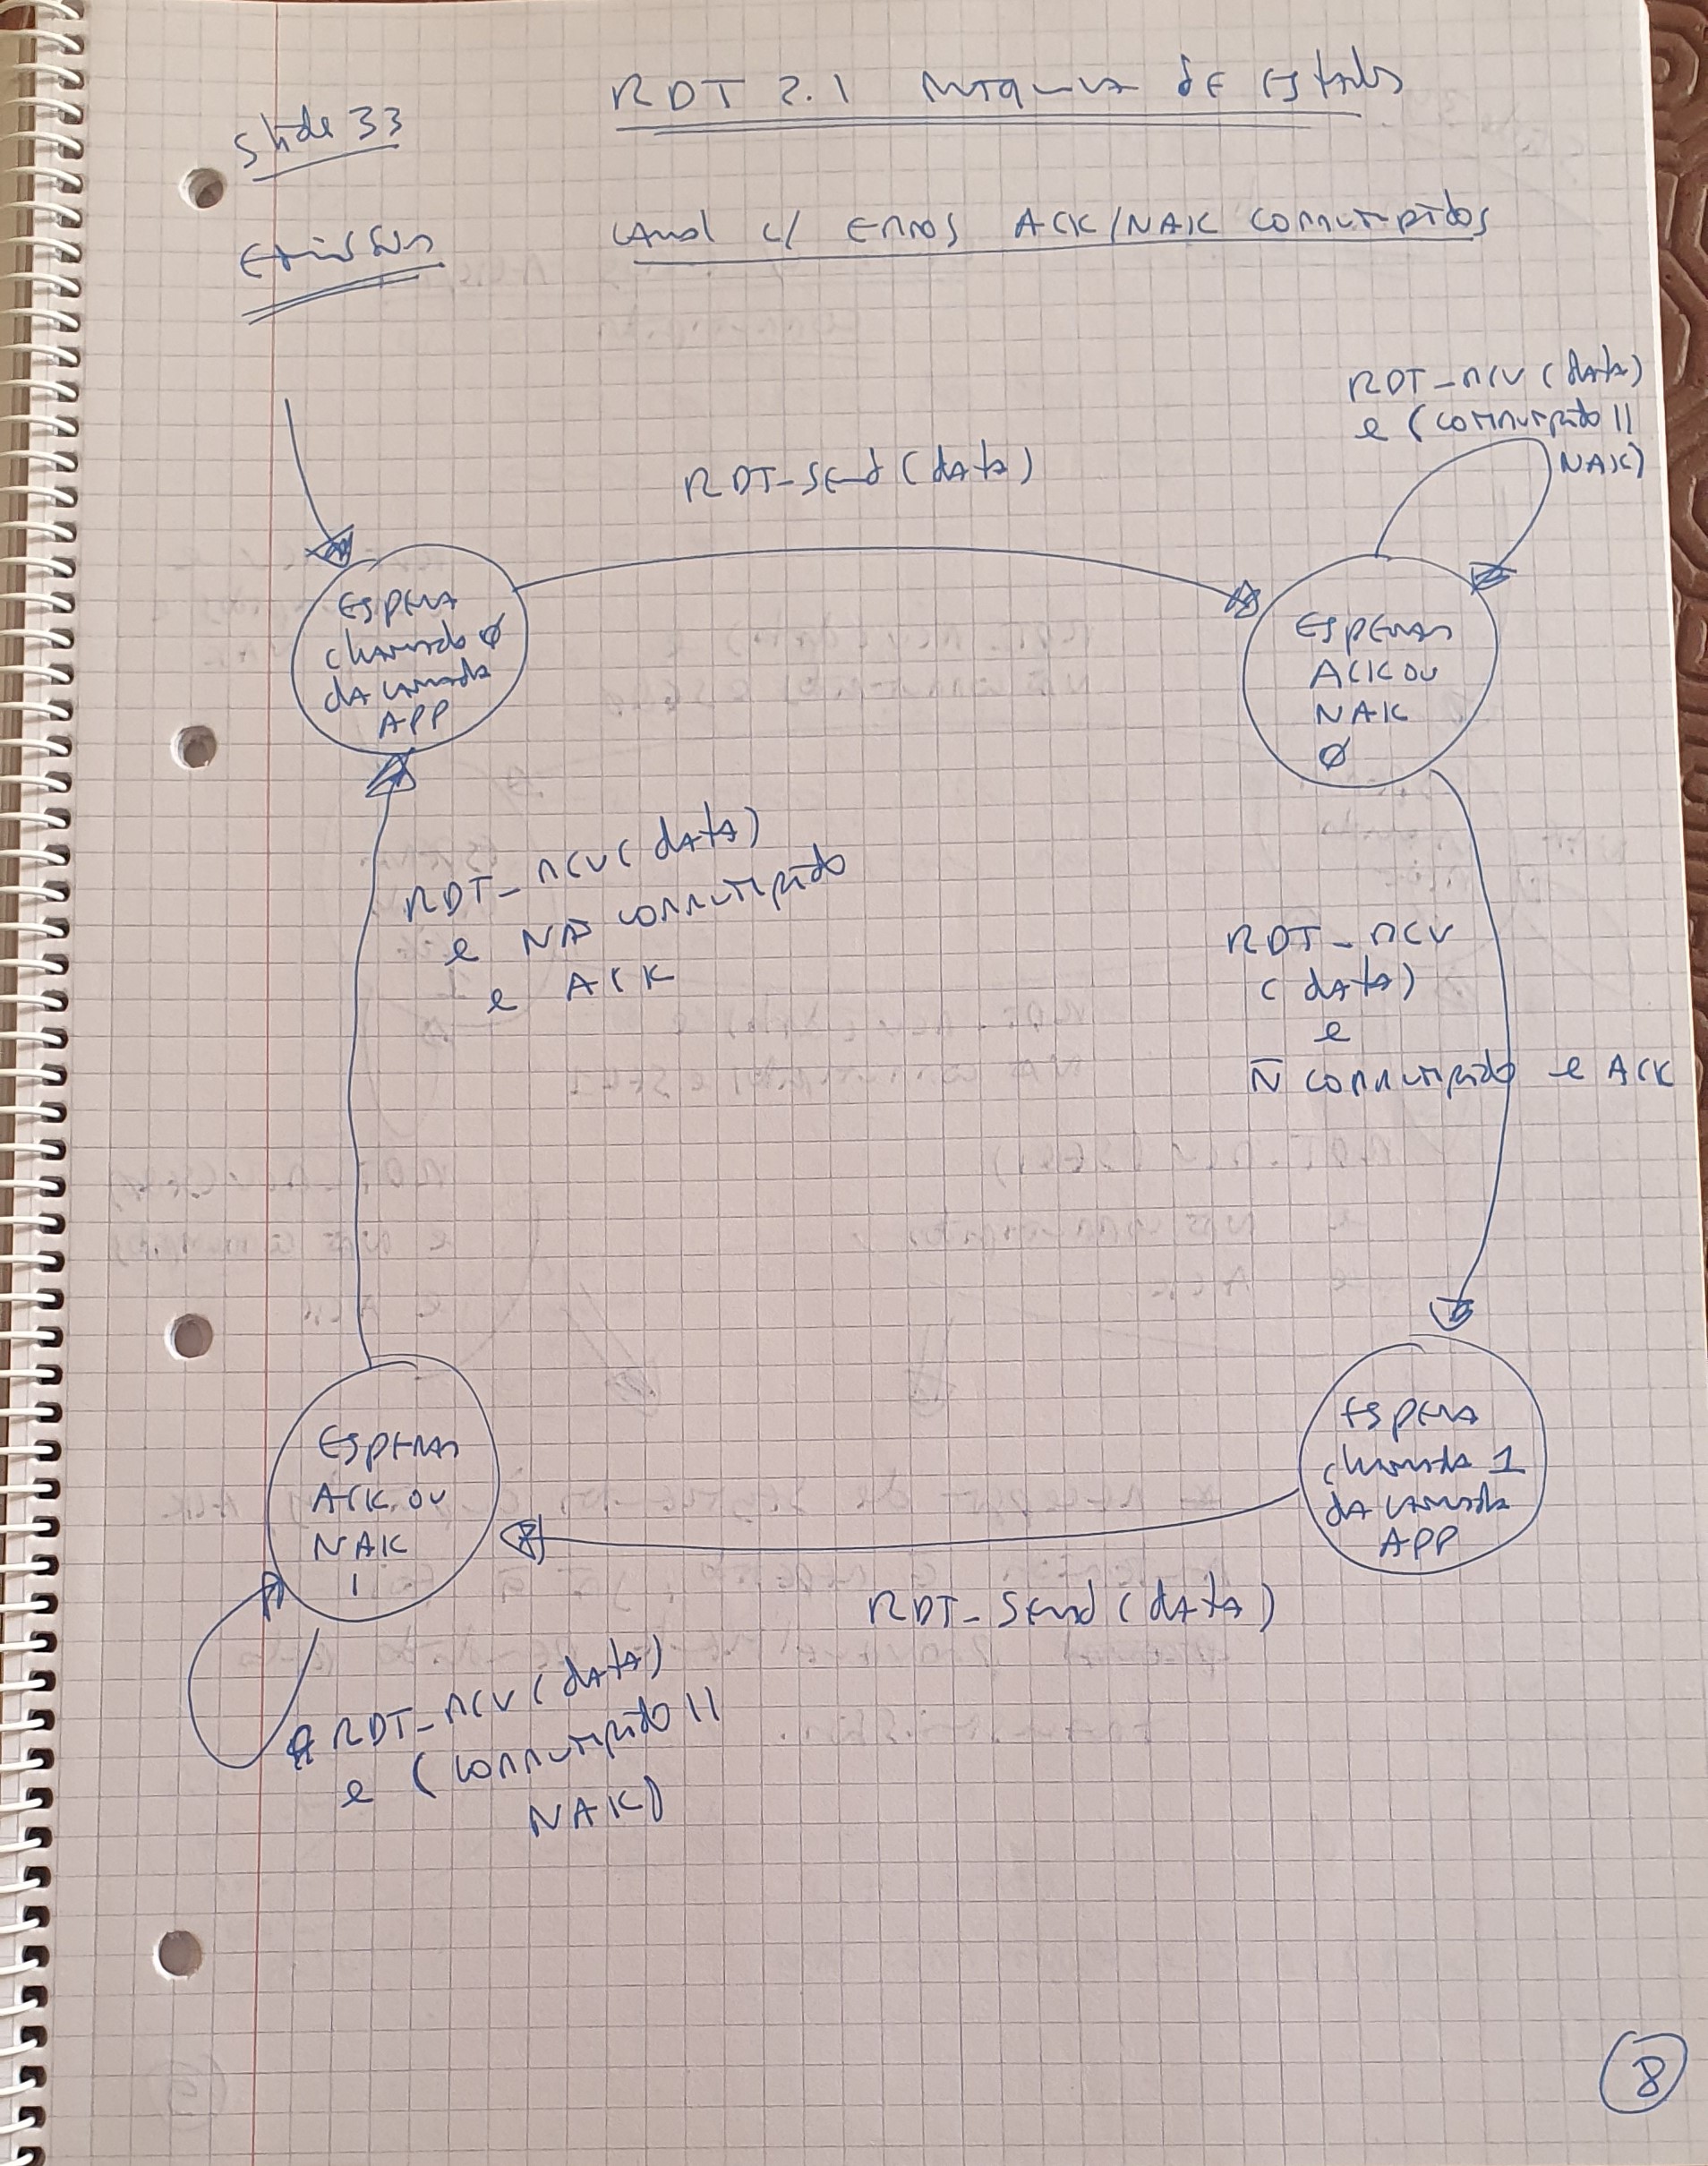 Slide 33
RDT 2.1 Máquina de Estados
Emissor
Canal c/ Erros ACK/NAK corrompidos
RDT_rcv (data)
e (corrompido ||
NAK)
RDT_Send (data)
Espera
chamada 0
da camada
APP
Esperar
ACK ou
NAK
0
RDT_rcv (data)
e Não corrompido
e ACK
RDT_rcv
(data)
e
Ñ corrompido e ACK
Esperar
ACK ou
NAK
1
Espera
chamada 1
da camada
APP
RDT_Send (data)
RDT_rcv (data)
e (corrompido ||
NAK)
8